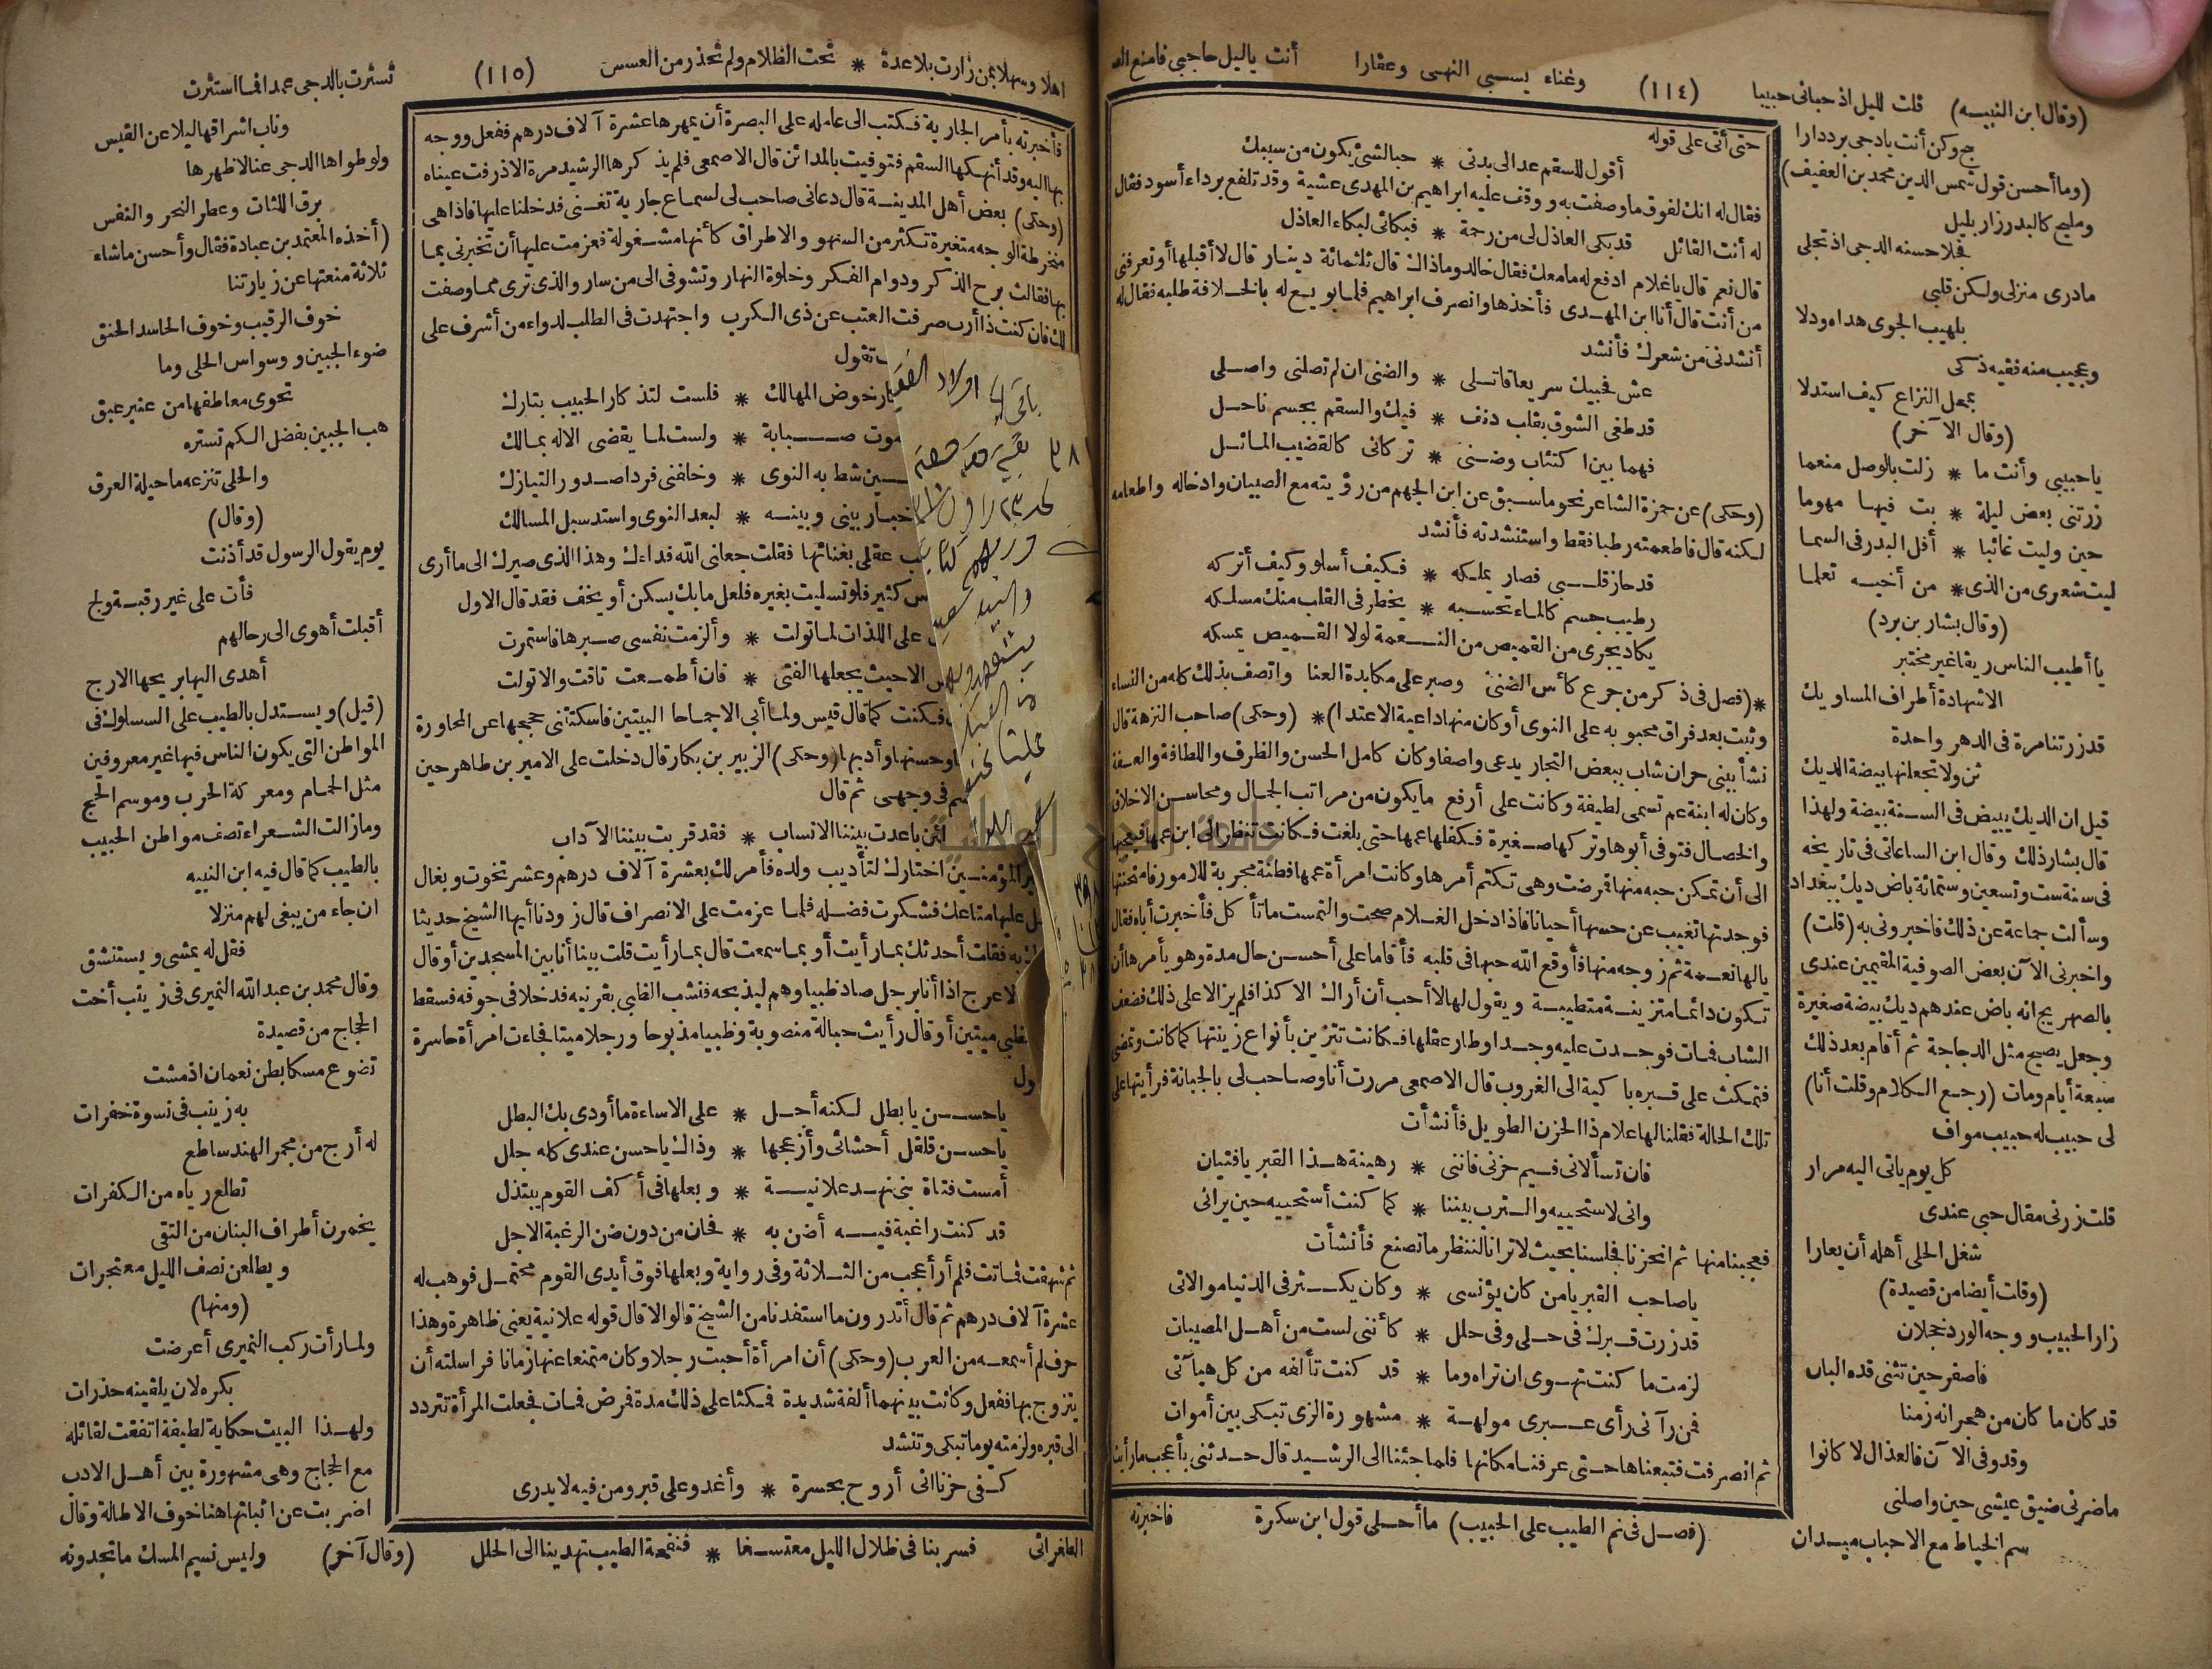 (وقال ابن النبيه) قلت لليل اذ حبانى حبيبا (١١٤) وغناء يسبى النهى وعقارا أنت ياليل حاجبى فامنع الص
ج وكن أنت يادجى برددارا
(وما أحسن قول شمس الدين محمد بن العفيف)
ومليح كالبدر زار بليل
فجلا حسنه الدجى اذ تجلى
مادرى منزلى ولكن قلبى
بلهيب الجوى هداه ودلا
وعجيب منه فقيه ذكى
بمحل النزاع كيف استدلا
(وقال الآخر)
ياحبيبى وأنت ما * زلت بالوصل منعما
زرتنى بعض ليلة * بت فيها مهوما
حين وليت غائبا * أفل البدر فى السما
ليت شعرى من الذى * من أخيه تعلما
(وقال بشار بن برد)
يا أطيب الناس ريقا غير مختبر
الا شهادة أطراف المساويك
قد زرتنا مرة فى الدهر واحدة
ثن ولا تجعلنها بيضة الديك
قيل ان الديك يبيض فى السنة بيضة ولهذا
قال بشار ذلك وقال ابن الساعاتى فى تاريخه
فى سنة ست وتسعين وستمائة باض ديك ببغداد
وسألت جماعة عن ذلك فاخبرونى به (قلت)
واخبرنى الآن بعض الصوفية المقيمين عندى
بالصهريج انه باض عندهم ديك بيضة صغيرة
وجعل يصيح مثل الدجاجة ثم أقام بعد ذلك
سبعة أيام ومات (رجع الكلام وقلت أنا)
لى حبيب له حبيب مواف
كل يوم ياتى اليه مرار
قلت زرنى مقال حبى عندى
شغل الحلى أهله أن يعارا
(وقلت أيضا من قصيدة)
زار الحبيب ووجه الورد خجلان
فاصفر حين تثنى قده البان
قد كان ما كان من هجرانه زمنا
وقد وفى الآن فالعذال لا كانوا
ماضرنى ضيق عيشى حين واصلنى
سم الخياط مع الاحباب ميدان
(فصل فى نم الطيب على الحبيب) ما أحلى قول ابن سكرة
حتى أتى على قوله
أقول للسقم عد الى بدنى * حبا لشئ يكون من سببك
فقال له انك لفوق ما وصفت به ووقف عليه ابراهيم بن المهدى عشية وقد تلفع برداء أسود فقال
له أنت القائل قد بكى العاذل لى من رحمة * فبكائى لبكاء العاذل
قال نعم قال ياغلام ادفع له ما معك فقال خالد وماذاك قال ثلثمائة دينار قال لا أقبلها أو تعرفنى
من أنت قال أنا ابن المهدى فأخذها وانصرف ابراهيم فلما بويع له بالخلافة طلبه فقال له
أنشدنى من شعرك فأنشد
عش فحبيك سريعا قاتلى * والضنى ان لم تصلنى واصلى
قد طغى الشوق بقلب دنف * فيك والسقم بجسم ناحل
فهما بين اكتئاب وضنى * تركانى كالقضيب المائل
(وحكى) عن حمزة الشاعر نحو ما سبق عن ابن الجهم من رؤيته مع الصبيان وادخاله واطعامه
لكنه قال فاطعمته رطبا فقط واستنشدته فأنشد
قد حاز قلبى فصار يملكه * فكيف أسلو وكيف أتركه
رطيب جسم كالماء تحسبه * يخطر فى القلب منك مسلكه
يكاد يجرى من القميص من النعمة لولا القميص يمسكه
*(فصل فى ذكر من جرع كأس الضنى وصبر على مكابدة العنا واتصف بذلك كله من النساء
وثبت بعد فراق محبوبه على النوى أو كان منها داعية الاعتدا)* (وحكى) صاحب النزهة قال
نشأ ببنى حران شاب ببعض التجار يدعى واصفا وكان كامل الحسن والظرف واللطافة والعفة
وكان له ابنة عم تسمى لطيفة وكانت على أرفع ما يكون من مراتب الجمال ومحاسن الاخلاق
والخصال فتوفى أبوها وتركها صغيرة فكفلها عمها حتى بلغت فكانت تنظر الى ابن عمها فيعجبها
الى أن تمكن حبه منها فمرضت وهى تكتم أمرها وكانت امرأة عمها فطنة مجربة للامور فامتحنتها
فوجدتها تغيب عن حسها أحيانا فاذا دخل الغلام صحت والتمست ما تأكل فأخبرت أباه فقال
يالها نعمة ثم زوجه منها فأوقع الله حبها فى قلبه فأقاما على أحسن حال مدة وهو يأمرها أن
تكون دائما متزينة متطيبة ويقول لها لا أحب أن أراك الا كذا فلم يزالا على ذلك فضعف
الشاب فمات فوجدت عليه وجدا وطار عقلها فكانت تتزين بأنواع زينتها كما كانت وتمضى
فتمكث على قبره باكية الى الغروب قال الاصمعى مررت أنا وصاحب لى بالجبانة فرأيتها على
تلك الحالة فقلنا لها علام ذا الحزن الطويل فأنشأت
فان تسألانى فيم حزنى فاننى * رهينة هذا القبر يافتيان
وانى لاستحييه والترب بيننا * كما كنت أستحييه حين يرانى
فعجبنا منها ثم انحزنا فجلسنا بحيث لا ترانا لننظر ما تصنع فأنشأت
ياصاحب القبر يامن كان يؤنسى * وكان يكثر فى الدنيا مواتاتى
قد زرت قبرك فى حلى وفى حلل * كأننى لست من أهل المصيبات
لزمت ما كنت تهوى ان تراه وما * قد كنت تألفه من كل هيآتى
فمن رآنى رأى عبرى مولهة * مشهورة الزى تبكى بين أموات
ثم انصرفت فتبعناها حتى عرفنا مكانها فلما جئنا الى الرشيد قال حدثنى بأعجب ما رأيت
فاخبرته
اهلا وسهلا بمن زارت بلا عدة * تحت الظلام ولم تحذر من العسس (١١٥) تسترت بالدجى عمدا فما استترت
وناب اشراقها ليلا عن القبس
ولو طواها الدجى عنا لاظهرها
برق اللثات وعطر النحر والنفس
(أخذه المعتمد بن عباد فقال وأحسن ما شاء
ثلاثة منعتها عن زيارتنا
خوف الرقيب وخوف الحاسد الحنق
ضوء الجبين ووسواس الحلى وما
تحوى معاطفها من عنبر عبق
هب الجبين بفضل الكم تستره
والحلى تنزعه ما حيلة العرق
(وقال)
يوم يقول الرسول قد أذنت
فأت على غير رقبة ولج
أقبلت أهوى الى رحالهم
أهدى اليها بريحها الارج
(قيل) ويستدل بالطيب على السلوك فى
المواطن التى يكون الناس فيها غير معروفين
مثل الحمام ومعركة الحرب وموسم الحج
وما زالت الشعراء تصف مواطن الحبيب
بالطيب كما قال فيه ابن النبيه
ان جاء من يبغى لهم منزلا
فقل له يمشى ويستنشق
وقال محمد بن عبد الله النميرى فى زينب أخت
الحجاج من قصيدة
تضوع مسكا بطن نعمان اذ مشت
به زينب فى نسوة خفرات
له أرج من مجمر الهند ساطع
تطلع رياه من الكفرات
يخمرن أطراف البنان من التقى
ويطلعن نصف الليل معتجرات
(ومنها)
ولما رأت ركب النميرى أعرضت
بكره لان يلقينه حذرات
ولهذا البيت حكاية لطيفة اتفقت لقائله
مع الحجاج وهى مشهورة بين أهل الادب
اضربت عن اثباتها هنا خوف الاطالة وقال
الطغرائى فسر بنا فى ظلال الليل معتسفا * فنفحة الطيب تهدينا الى الحلل (وقال آخر) وليس نسيم المسك ما تجدونه
فأخبرته بأمر الجارية فكتب الى عامله على البصرة أن يمهرها عشرة آلاف درهم ففعل ووجه
بها اليه وقد أنهكها السقم فتوفيت بالمدائن قال الاصمعى فلم يذكرها الرشيد مرة الا ذرفت عيناه
(وحكى) بعض أهل المدينة قال دعانى صاحب لى لسماع جارية تغنى فدخلنا عليها فاذا هى
منخرطة الوجه متغيرة تكثر من السهو والاطراق كأنها مشغولة فعزمت عليها أن تخبرنى بما
بها فقالت برح الذكر ودوام الفكر وخلوة النهار وتشوقى الى من سار والذى ترى مما وصفت
لك فان كنت ذا أرب صرفت العتب عن ذى الكرب واجتهدت فى الطلب لدواء من أشرف على
تقول
خوض المهالك * فلست لتذكار الحبيب بتارك
موت صبابة * ولست لما يقضى الاله بمالك
ين شط به النوى * وخلفنى فردا صدور النيازك
خبار بينى وبينه * لبعد النوى واستد سبل المسالك
عقلى بغنائها فقلت جعلنى الله فداءك وهذا الذى صيرك الى ما أرى
س كثير فلو تسليت بغيره فلعل مابك يسكن أو يخف فقد قال الاول
على اللذات لما تولت * وألزمت نفسى صبرها فاستمرت
الا حيث يجعلها الفتى * فان أطمعت تاقت والا تولت
فكنت كما قال قيس ولما أبى الا جماحا البيتين فاسكتتنى حججها عن المحاورة
وحسنها وأدبها (وحكى) الزبير بن بكار قال دخلت على الامير بن طاهر حين
م فى وجهى ثم قال
لئن باعدت بيننا الانساب * فقد قربت بيننا الآداب
ير المؤمنين اختارك لتأديب ولده فأمر لك بعشرة آلاف درهم وعشر تخوت وبغال
ل عليها متاعك فشكرت فضله فلما عزمت على الانصراف قال زودنا أيها الشيخ حديثا
به فقلت أحدثك بما رأيت أو بما سمعت قال بما رأيت قلت بينا أنا بين المسجدين أو قال
لاعرج اذا أنا برجل صاد ظبيا وهم ليذبحه فنشب الظبى بقرنيه فدخلا فى جوفه فسقط
ظبى ميتين أو قال رأيت حبالة منصوبة وظبيا مذبوحا ورجلا ميتا فجاءت امرأة حاسرة
ول
ياحسن يا بطل لكنه أجل * على الاساءة ما أودى بك البطل
ياحسن قلقل أحشائى وأزعجها * وذاك ياحسن عندى كله جلل
أمست فتاة بنى نهد علانية * وبعلها فى أكف القوم يبتذل
قد كنت راغبة فيه أضن به * فحان من دون ضن الرغبة الاجل
ثم شهقت فماتت فلم أر أعجب من الثلاثة وفى رواية وبعلها فوق أيدى القوم محتمل فوهب له
عشرة آلاف درهم ثم قال أتدرون ما استفدنا من الشيخ قالوا لا قال قوله علانية يعنى ظاهرة وهذا
حرف لم أسمعه من العرب (وحكى) أن امرأة أحبت رجلا وكان متمنعا عنها زمانا فراسلته أن
يتزوج بها ففعل وكانت بينهما ألفة شديدة فمكثا على ذلك مدة فمرض فمات فجعلت المرأة تتردد
الى قبره ولزمته يوما تبكى وتنشد
كفى حزنا انى أروح بحسرة * وأغدو على قبر ومن فيه لا يدرى